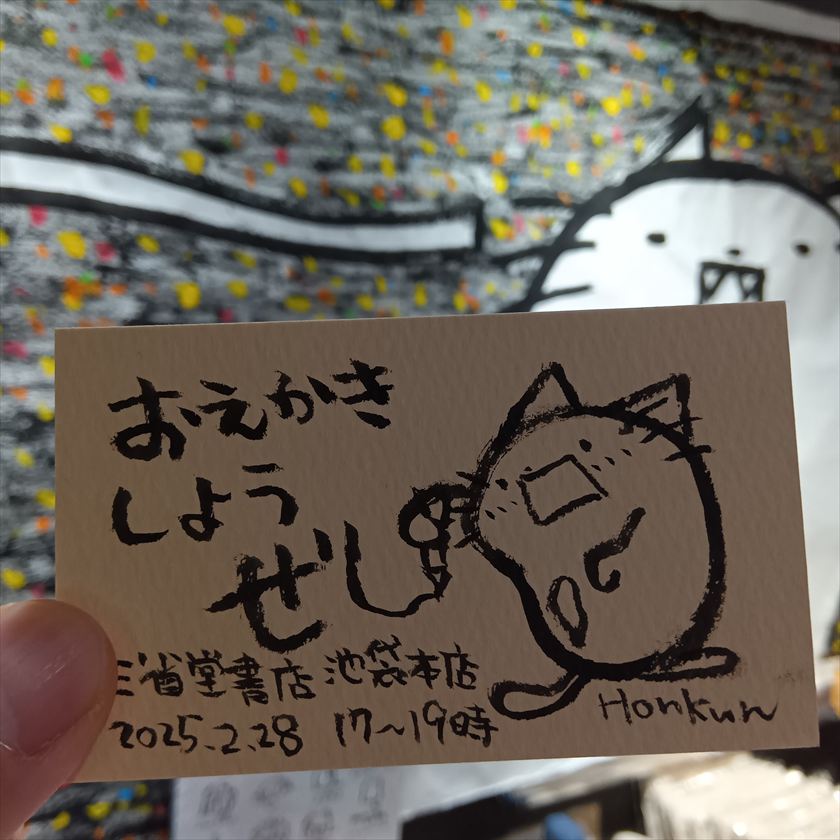 おえかき
しょう
ぜ
三省堂書店 池袋本店
2025.2.28 17~19時
Honkun